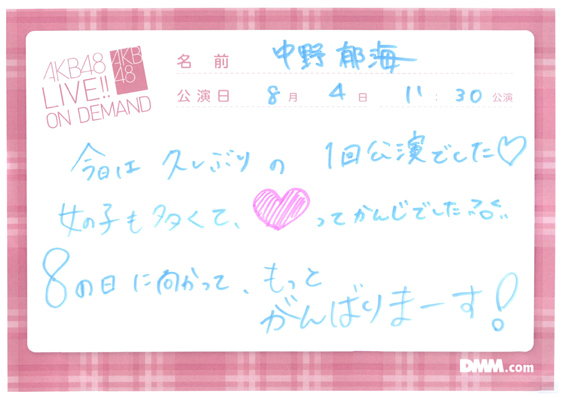 AKB48
LIVE!!
ON DEMAND
AKB
48
名前 中野郁海
公演日 8月 4日 11:30公演
今日は 久しぶりの 1回公演でした♡
女の子も多くて、♥ってかんじでした
8の日に向かって、もっと
がんばりまーす!
DMM.com